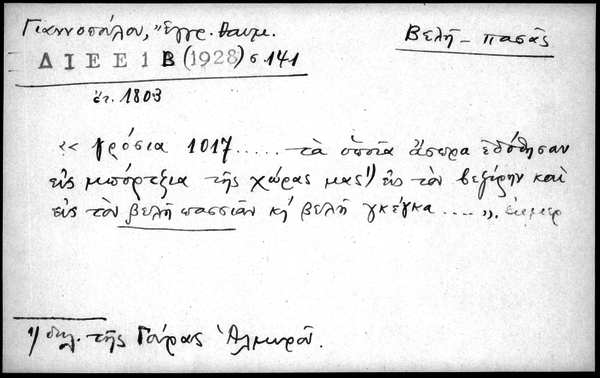 Γιαννοπούλου, "Έγγρ. θαυμ.
Βελῆ-πασᾶς
ΔΙΕΕ 1Β (1928) σ. 141
ἐτ. 1803
«γρόσια 1017..... τὰ ὁποῖα ἄσπρα ἐδόθησαν
εἰς μπόρτζια τῆς χώρας μας¹) εἰς τὸν βεζίρην καὶ
εἰς τὸν βελῆ πασσιᾶν κὴ βελῆ γκέγκα .....».
1) δηλ. τῆς Γούρας Ἁλμυροῦ.